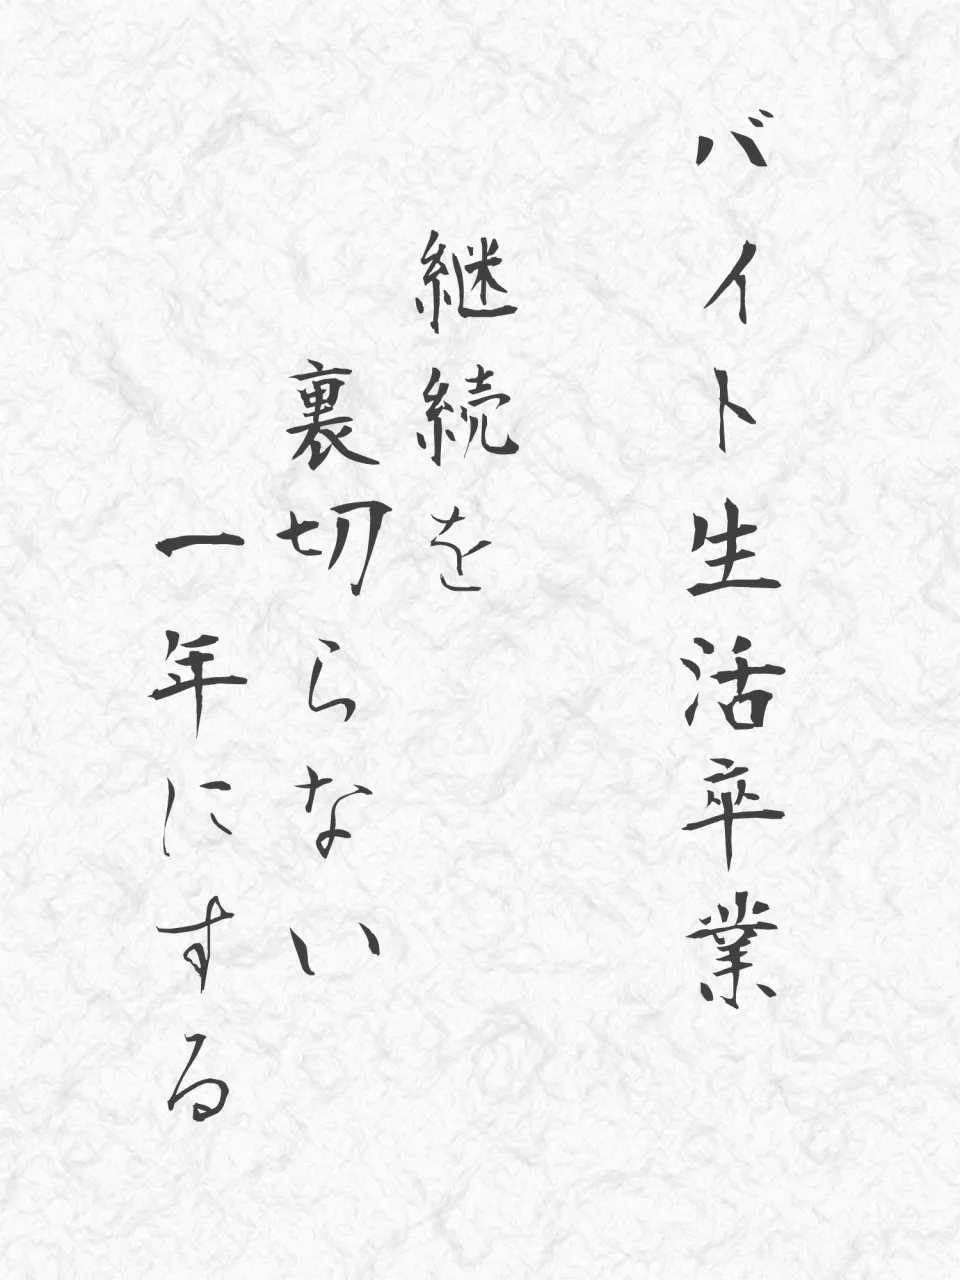 バイト生活卒業
継続を
裏切らない
一年にする